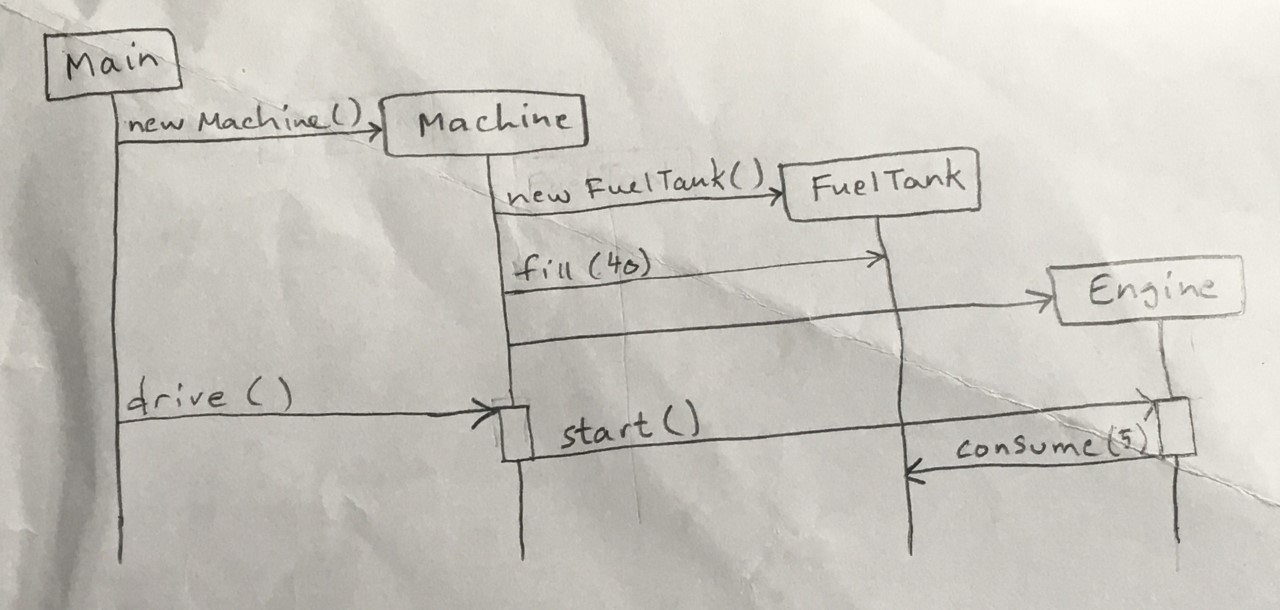 Main
new Machine()
Machine
new FuelTank()
FuelTank
fill (40)
Engine
drive ()
start ()
consume (5)